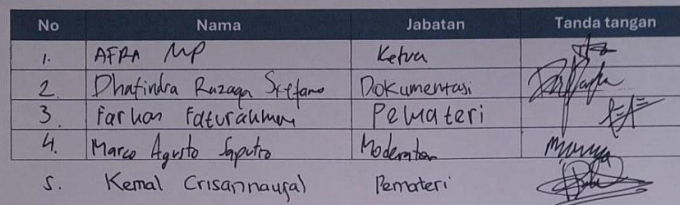 No Nama Jabatan Tanda tangan
1. AFRA MP Ketua
2. Dhafindra Razaqa Stefano Dokumentasi
3. Farhan Faturahman Pemateri
4. Marco Agusto Saputro Moderator
5. Kemal Crisannaufal Pemateri